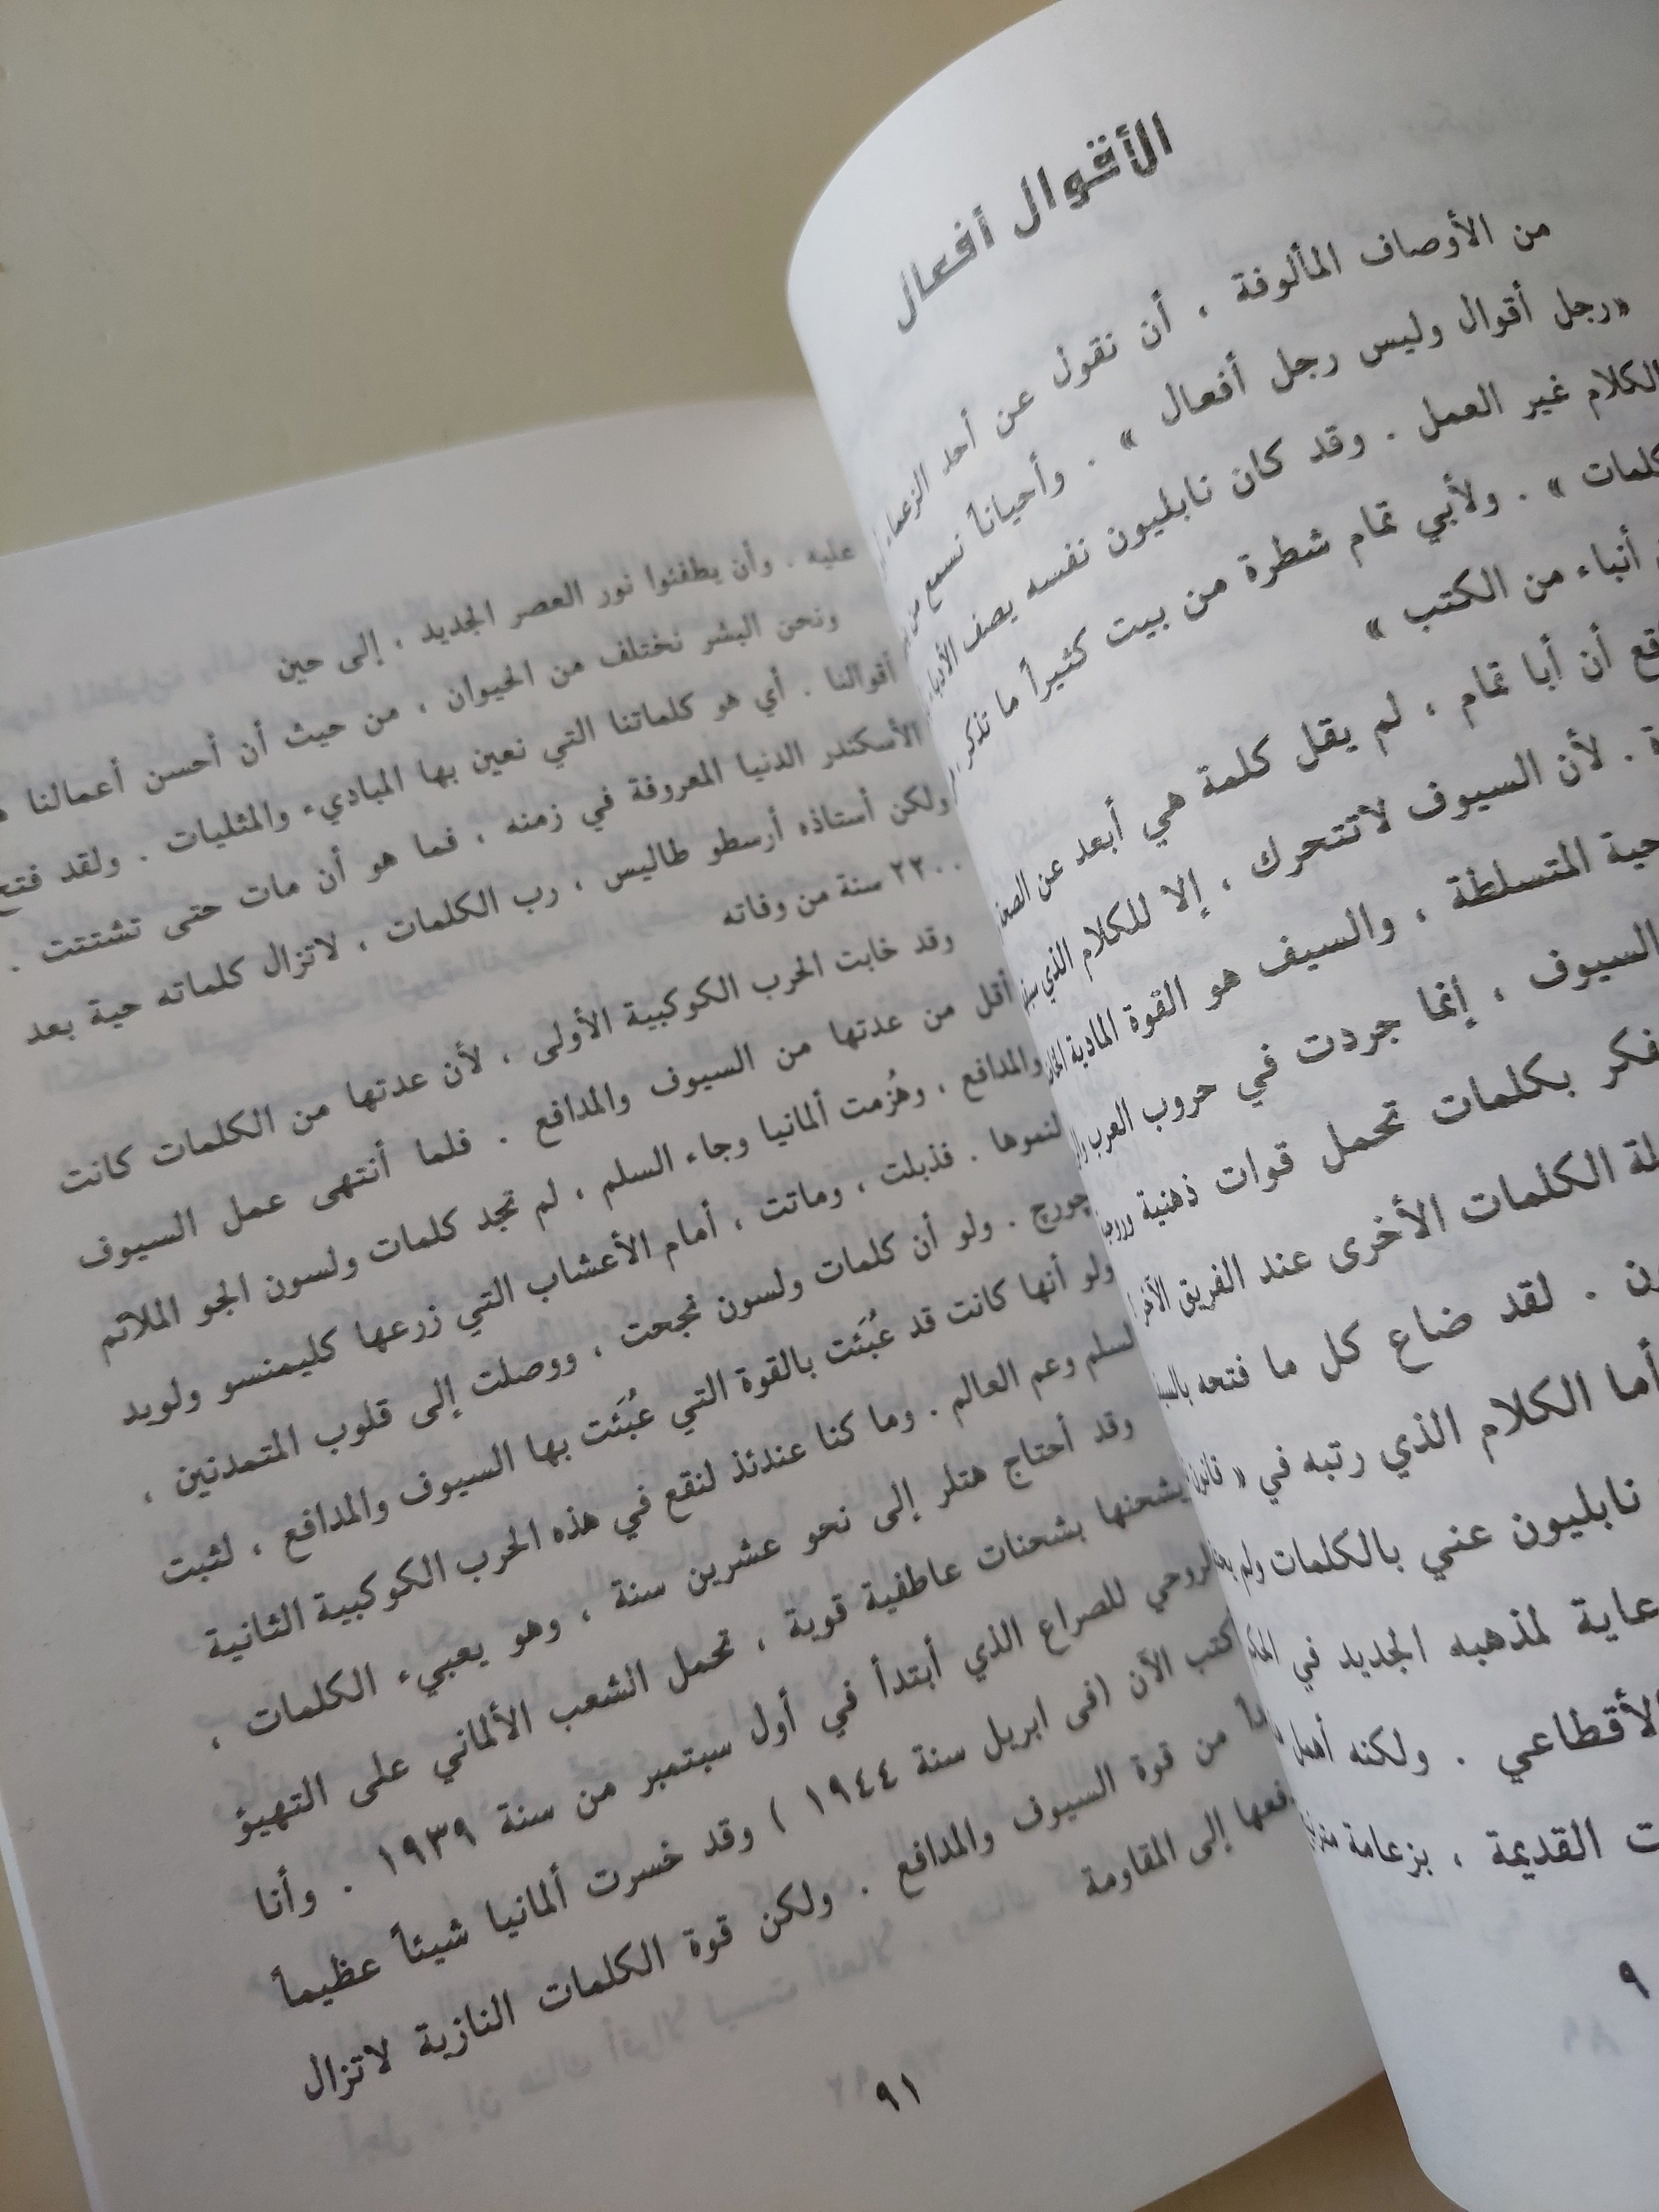 الأقوال أفعال
من الأوصاف المألوفة ، أن نقول عن أحد الزعماء
«رجل أقوال وليس رجل أفعال » . وأحياناً نسمع من
الكلام غير العمل . وقد كان نابليون نفسه يصف الأدباء
كلمات » . ولأبي تمام شطرة من بيت كثيراً ما تذكر
أنباء من الكتب »
أن أبا تمام ، لم يقل كلمة هي أبعد عن
. لأن السيوف لاتتحرك ، إلا للكلام الذي
المتسلطة ، والسيف هو القوة المادية
السيوف ، إنما جردت في حروب العرب
بكلمات تحمل قوات ذهنية
الكلمات الأخرى عند الفريق الآخر
. لقد ضاع كل ما فتحه
أما الكلام الذي رتبه في « قانون
نابليون عني بالكلمات ولم
لمذهبه الجديد في
. ولكنه أهمل
القديمة ، بزعامة
٩
عليه . وأن يطفئوا نور العصر الجديد ، إلى حين
ونحن البشر نختلف من الحيوان ، من حيث أن أحسن أعمالنا
أقوالنا . أي هو كلماتنا التي نعين بها المباديء والمثليات . ولقد فتح
الأسكندر الدنيا المعروفة في زمنه ، فما هو أن مات حتى تشتتت .
ولكن أستاذه أرسطو طاليس ، رب الكلمات ، لاتزال كلماته حية بعد
٢٢٠٠ سنة من وفاته
وقد خابت الحرب الكوكبية الأولى ، لأن عدتها من الكلمات كانت
أقل من عدتها من السيوف والمدافع . فلما أنتهى عمل السيوف
والمدافع ، وهُزمت ألمانيا وجاء السلم ، لم تجد كلمات ولسون الجو الملائم
لنموها . فذبلت ، وماتت ، أمام الأعشاب التي زرعها كليمنسو ولويد
چورچ . ولو أن كلمات ولسون نجحت ، ووصلت إلى قلوب المتمدنين ،
ولو أنها كانت قد عُبَئت بالقوة التي عُبَئت بها السيوف والمدافع ، لثبت
السلم وعم العالم . وما كنا عندئذ لنقع في هذه الحرب الكوكبية الثانية
وقد أحتاج هتلر إلى نحو عشرين سنة ، وهو يعبيء الكلمات ،
يشحنها بشحنات عاطفية قوية ، تحمل الشعب الألماني على التهيؤ
الروحي للصراع الذي أبتدأ في أول سبتمبر من سنة ١٩٣٩ . وأنا
كتب الآن (فى ابريل سنة ١٩٤٤ ) وقد خسرت ألمانيا شيئاً عظيماً
من قوة السيوف والمدافع . ولكن قوة الكلمات النازية لاتزال
إلى المقاومة
٩١